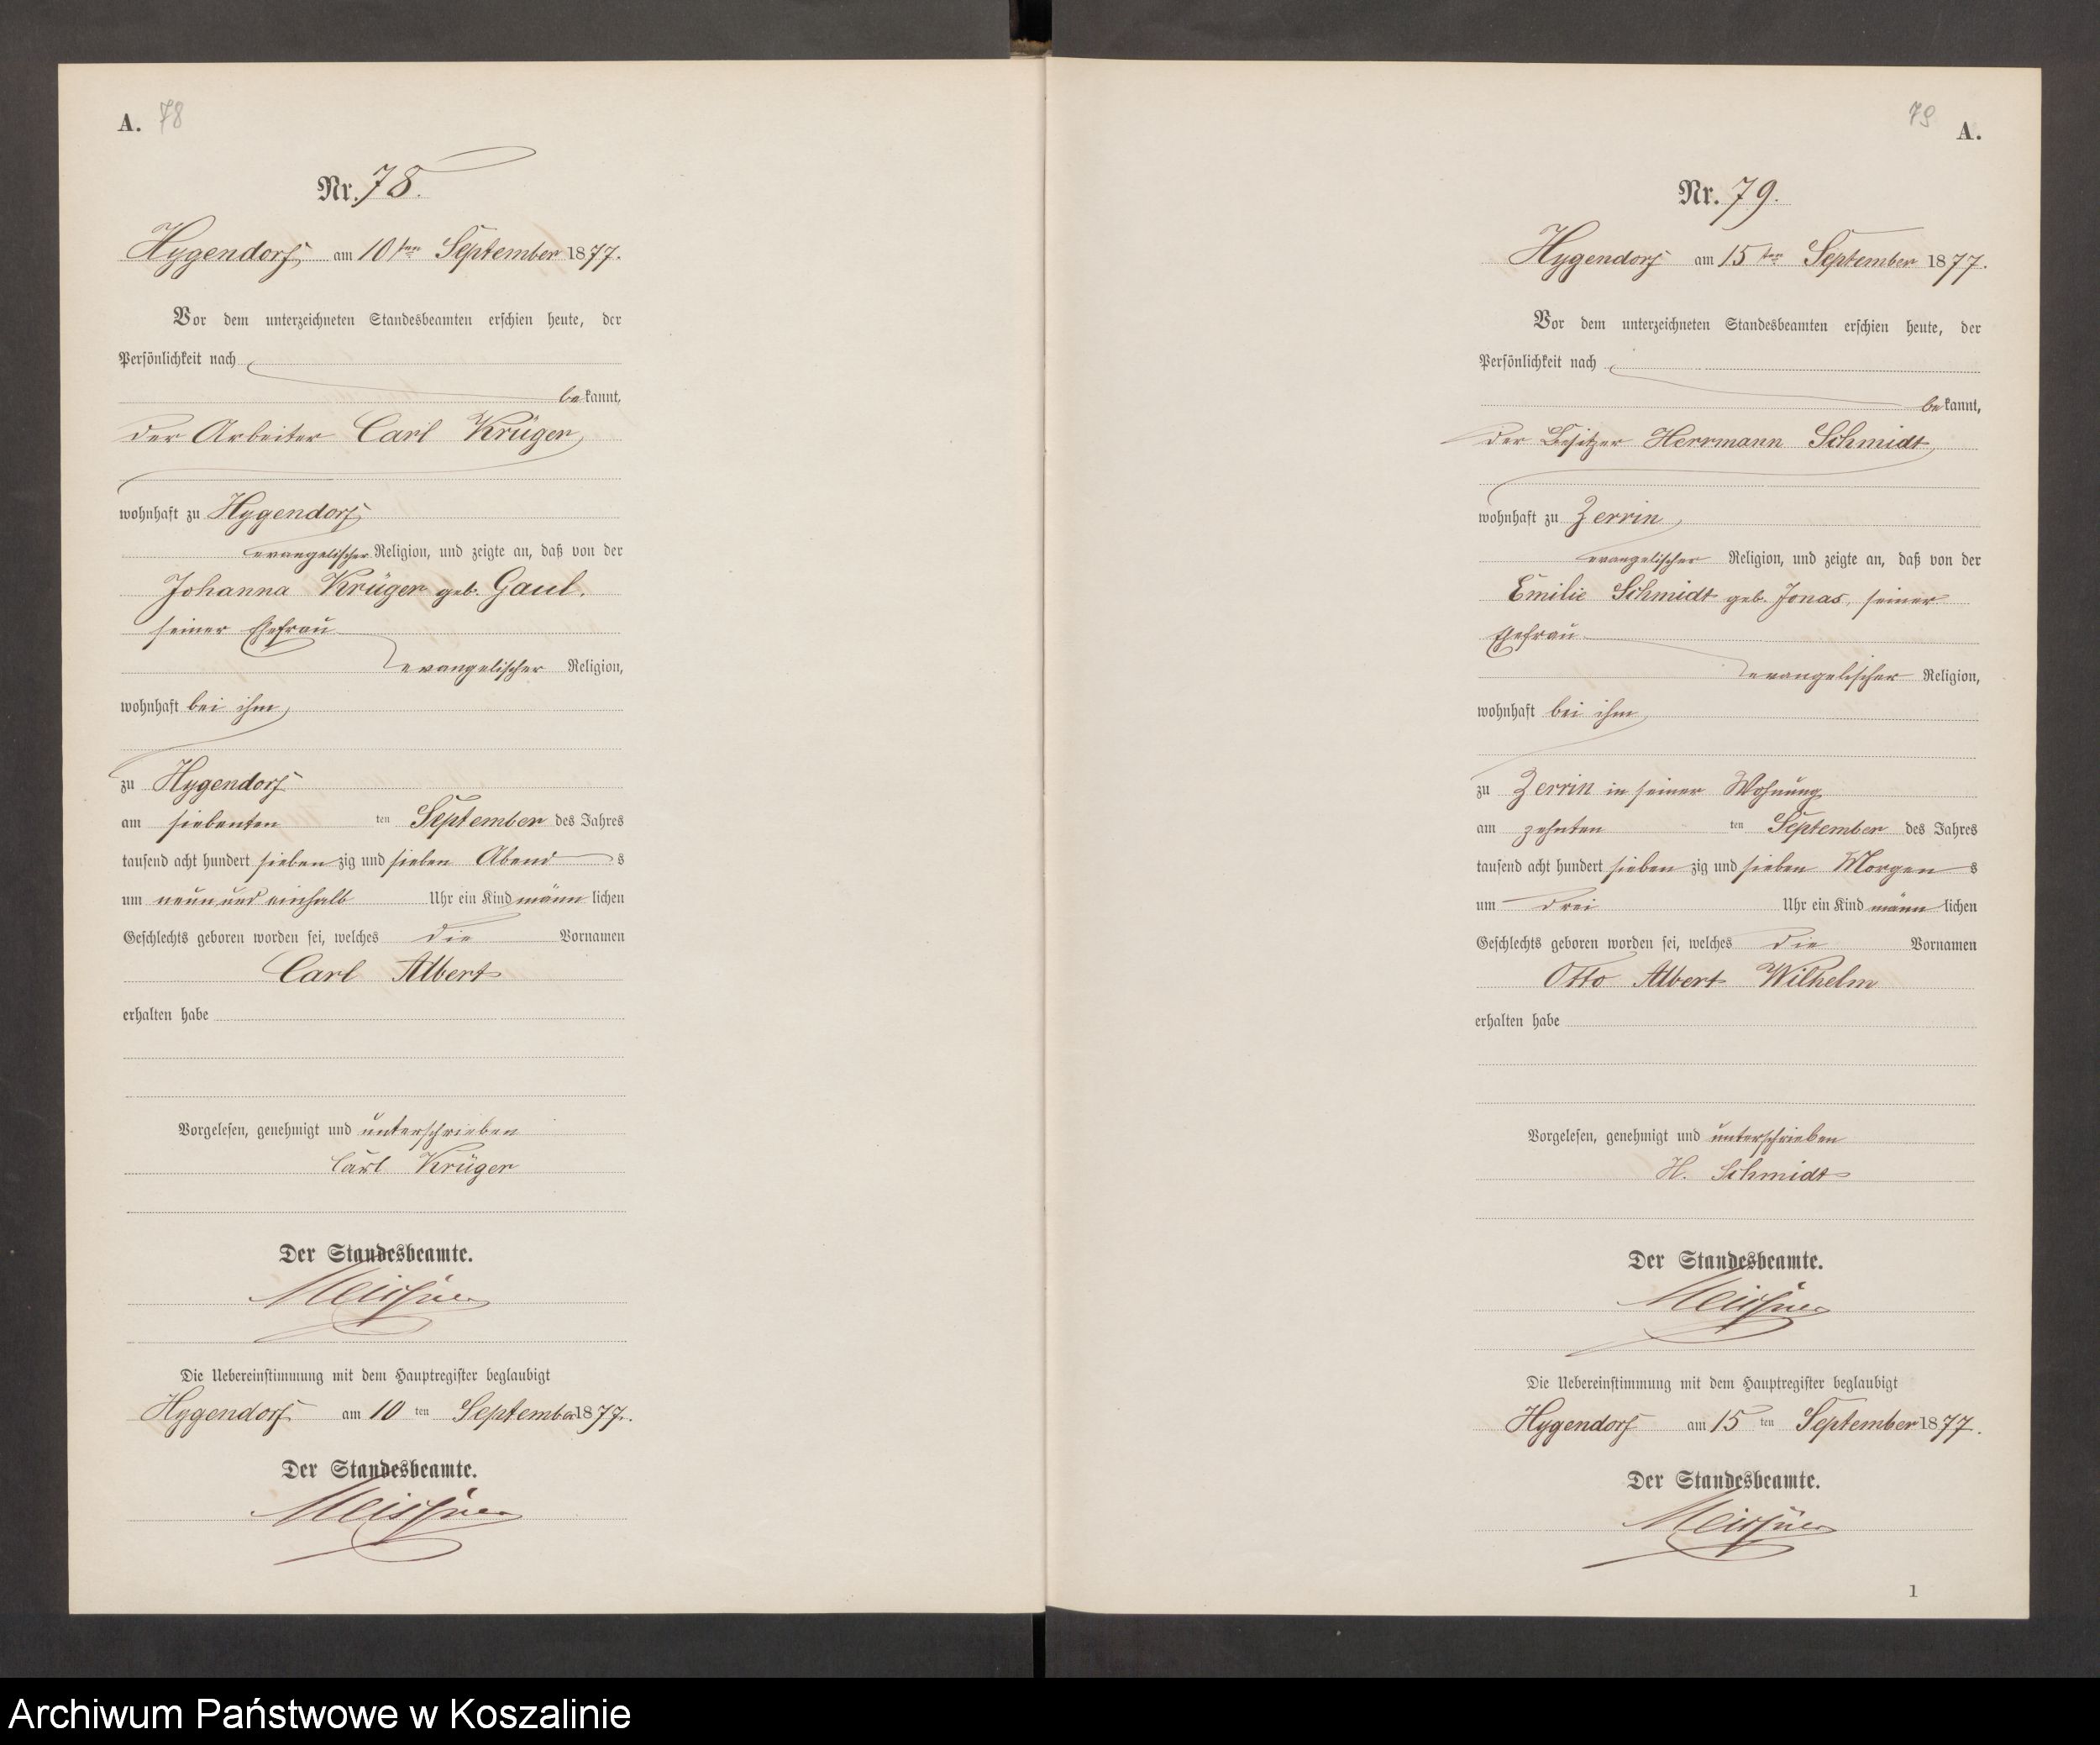 A. 78
Nr. 78.
Hygendorf, am 10ten September 1877.
Vor dem unterzeichneten Standesbeamten erschien heute, der
Persönlichkeit nach
bekannt,
der Arbeiter Carl Krüger,
wohnhaft zu Hygendorf,
evangelischer Religion, und zeigte an, daß von der
Johanna Krüger geb. Gaul,
seiner Ehefrau
evangelischer Religion,
wohnhaft bei ihm,
zu Hygendorf
am siebenten ten September des Jahres
tausend acht hundert siebenzig und sieben Abends
um neun und einhalb Uhr ein Kind männlichen
Geschlechts geboren worden sei, welches die Vornamen
Carl Albert
erhalten habe
Vorgelesen, genehmigt und unterschrieben
Carl Krüger
Der Standesbeamte.
Meissner
Die Uebereinstimmung mit dem Hauptregister beglaubigt
Hygendorf am 10 ten September 1877.
Der Standesbeamte.
Meissner
79 A.
Nr. 79.
Hygendorf am 15ten September 1877.
Vor dem unterzeichneten Standesbeamten erschien heute, der
Persönlichkeit nach
bekannt,
der Besitzer Herrmann Schmidt,
wohnhaft zu Zerrin,
evangelischer Religion, und zeigte an, daß von der
Emilie Schmidt geb. Jonas, seiner
Ehefrau
evangelischer Religion,
wohnhaft bei ihm,
zu Zerrin in seiner Wohnung
am zehnten ten September des Jahres
tausend acht hundert siebenzig und sieben Morgens
um drei Uhr ein Kind männlichen
Geschlechts geboren worden sei, welches die Vornamen
Otto Albert Wilhelm
erhalten habe
Vorgelesen, genehmigt und unterschrieben
H. Schmidt
Der Standesbeamte.
Meissner
Die Uebereinstimmung mit dem Hauptregister beglaubigt
Hygendorf am 15 ten September 1877.
Der Standesbeamte.
Meissner
1
Archiwum Państwowe w Koszalinie